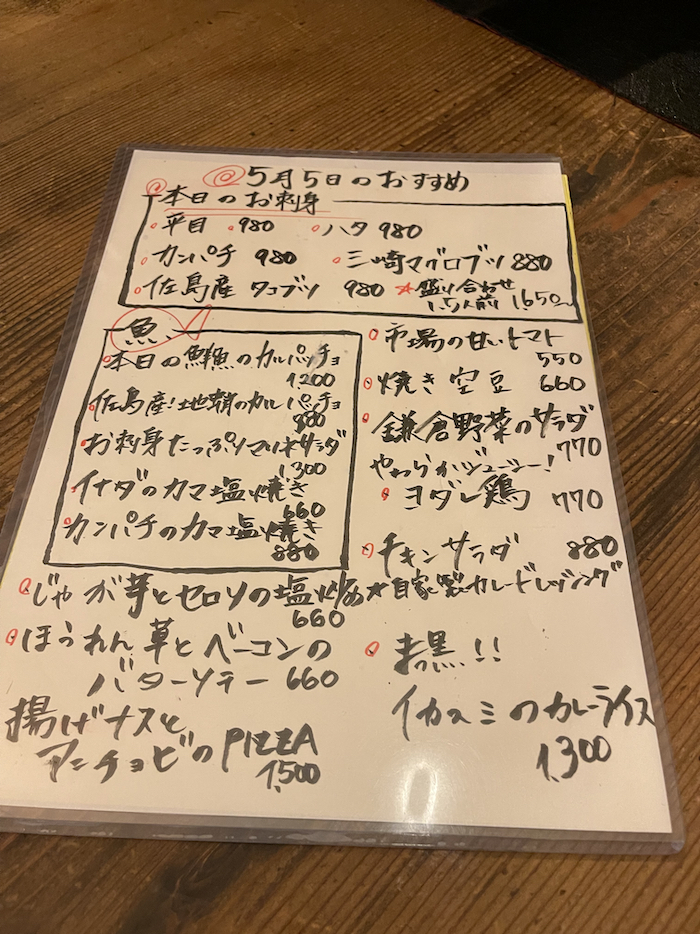 5月5日のおすすめ
本日のお刺身
平目 980
ハタ 980
カンパチ 980
三崎マグロブツ 880
佐島産 タコブツ 980
★盛り合わせ
1.5人前 1,650〜
魚
本日の鮮魚のカルパッチョ
1200
佐島産!地蛸のカルパッチョ
880
お刺身たっぷりマリネサラダ
1,300
イナダのカマ塩焼き
660
カンパチのカマ塩焼き
880
市場の甘いトマト
550
焼き空豆 660
鎌倉野菜のサラダ
770
やわらかジューシー!
ヨダレ鶏 770
チキンサラダ 880
★自家製カレードレッシング
じゃが芋とセロリの塩炒め
660
ほうれん草とベーコンの
バターソテー 660
揚げナスと
アンチョビのPIZZA
1,500
まっ黒!!
イカスミのカレーライス
1,300